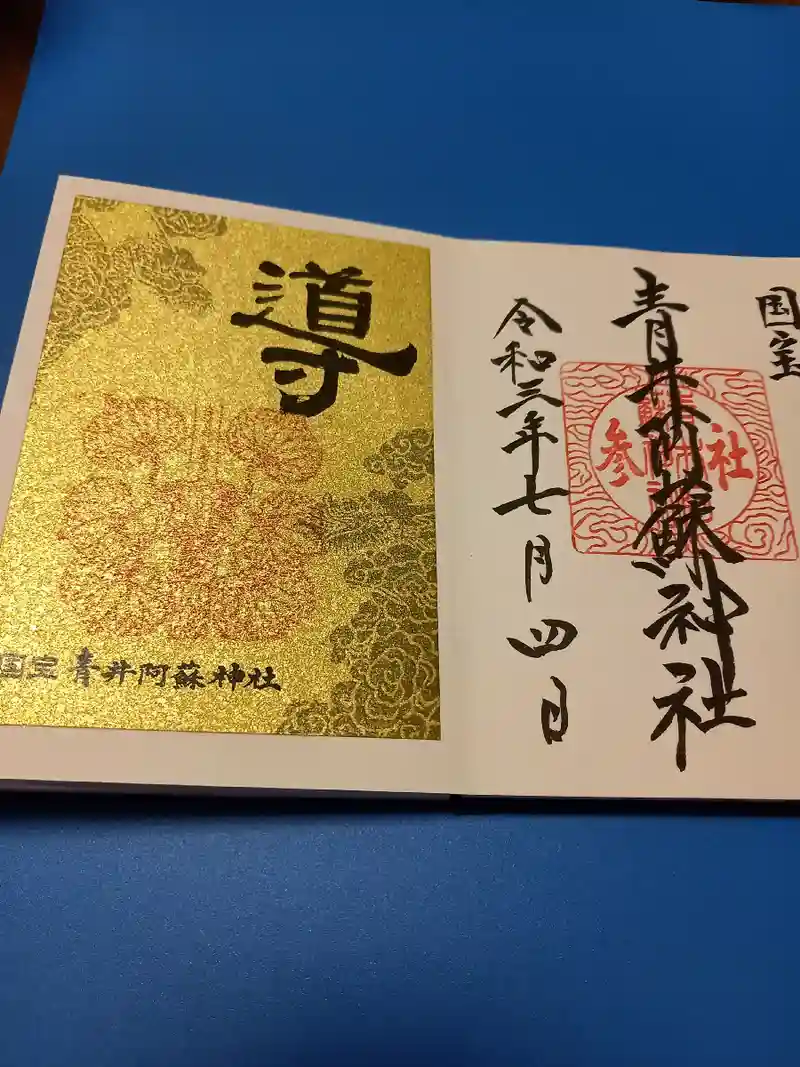 国宝
青井阿蘇神社
令和三年七月四日
導
国宝 青井阿蘇神社